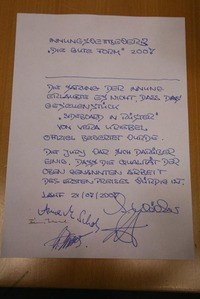 INNUNGSWETTBEWERB
"DIE GUTE FORM" 2007
DIE SATZUNG DER INNUNG
ERLAUBTE ES NICHT, DASS DAS
GESELLENSTÜCK
"SIDEBOARD IN RÜSTER"
VON VERA KREBEL
OFFIZIELL BEWERTET WURDE.
DIE JURY WAR SICH DARÜBER
EINIG, DASS DIE QUALITÄT DER
OBEN GENANNTEN ARBEIT
DES ERSTEN PREISES WÜRDIG IST.
LAUF 21/07/2007